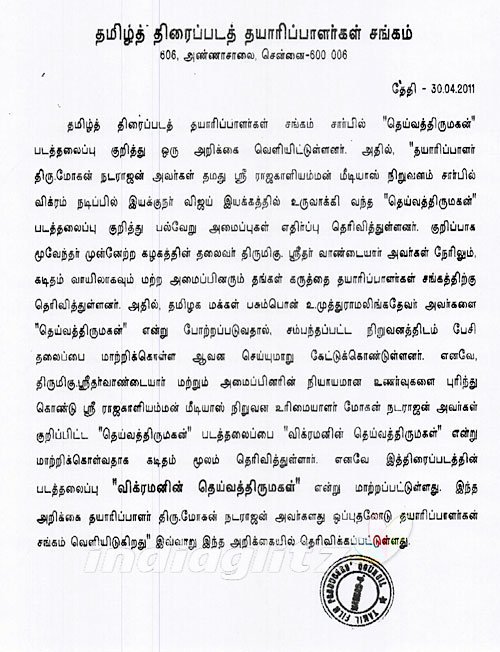 தமிழ்த் திரைப்படத் தயாரிப்பாளர்கள் சங்கம்
606, அண்ணாசாலை, சென்னை-600 006
தேதி - 30.04.2011
தமிழ்த் திரைப்படத் தயாரிப்பாளர்கள் சங்கம் சார்பில் "தெய்வத்திருமகன்"
படத்தலைப்பு குறித்து ஒரு அறிக்கை வெளியிட்டுள்ளனர். அதில், "தயாரிப்பாளர்
திரு.மோகன் நடராஜன் அவர்கள் தமது ஸ்ரீ ராஜகாளியம்மன் மீடியாஸ் நிறுவனம் சார்பில்
விக்ரம் நடிப்பில் இயக்குநர் விஜய் இயக்கத்தில் உருவாக்கி வந்த "தெய்வத்திருமகன்"
படத்தலைப்பு குறித்து பல்வேறு அமைப்புகள் எதிர்ப்பு தெரிவித்துள்ளனர். குறிப்பாக
மூவேந்தர் முன்னேற்ற கழகத்தின் தலைவர் திருமிகு. ஸ்ரீதர் வாண்டையார் அவர்கள் நேரிலும்,
கடிதம் வாயிலாகவும் மற்ற அமைப்பினரும் தங்கள் கருத்தை தயாரிப்பாளர்கள் சங்கத்திற்கு
தெரிவித்துள்ளனர். அதில், தமிழக மக்கள் பசும்பொன் உ.முத்துராமலிங்கதேவர் அவர்களை
"தெய்வத்திருமகன்" என்று போற்றப்படுவதால், சம்பந்தப்பட்ட நிறுவனத்திடம் பேசி
தலைப்பை மாற்றிக்கொள்ள ஆவன செய்யுமாறு கேட்டுக்கொண்டுள்ளனர். எனவே,
திருமிகு.ஸ்ரீதர்வாண்டையார் மற்றும் அமைப்பினரின் நியாயமான உணர்வுகளை புரிந்து
கொண்டு ஸ்ரீ ராஜகாளியம்மன் மீடியாஸ் நிறுவன உரிமையாளர் மோகன் நடராஜன் அவர்கள்
குறிப்பிட்ட "தெய்வத்திருமகன்" படத்தலைப்பை "விக்ரமனின் தெய்வத்திருமகள்" என்று
மாற்றிக்கொள்வதாக கடிதம் மூலம் தெரிவித்துள்ளார். எனவே இத்திரைப்படத்தின்
படத்தலைப்பு "விக்ரமனின் தெய்வத்திருமகள்" என்று மாற்றப்பட்டுள்ளது. இந்த
அறிக்கை தயாரிப்பாளர் திரு.மோகன் நடராஜன் அவர்களது ஒப்புதலோடு தயாரிப்பாளர்கள்
சங்கம் வெளியிடுகிறது" இவ்வாறு இந்த அறிக்கையில் தெரிவிக்கப்பட்டுள்ளது.
indiaglitz
TAMIL FILM PRODUCERS' COUNCIL